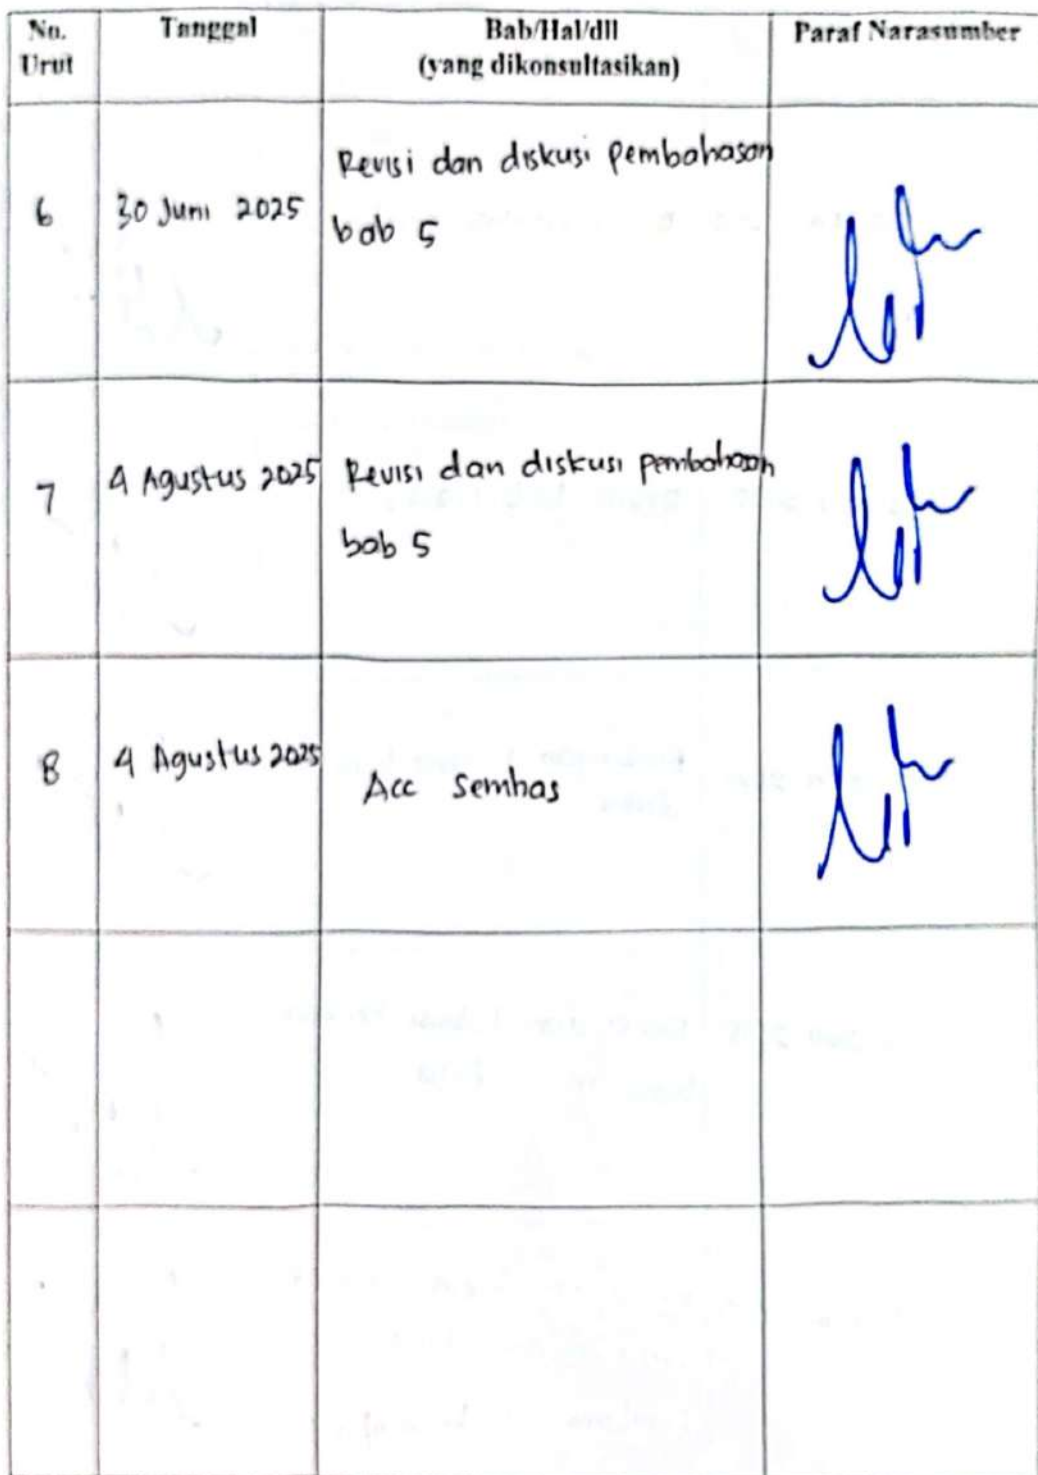 No. Urut
Tanggal
Bab/Hal/dll
(yang dikonsultasikan)
Paraf Narasumber
6
30 Juni 2025
Revisi dan diskusi pembahasan
bab 5
7
4 Agustus 2025
Revisi dan diskusi pembahasan
bab 5
8
4 Agustus 2025
Acc Semhas